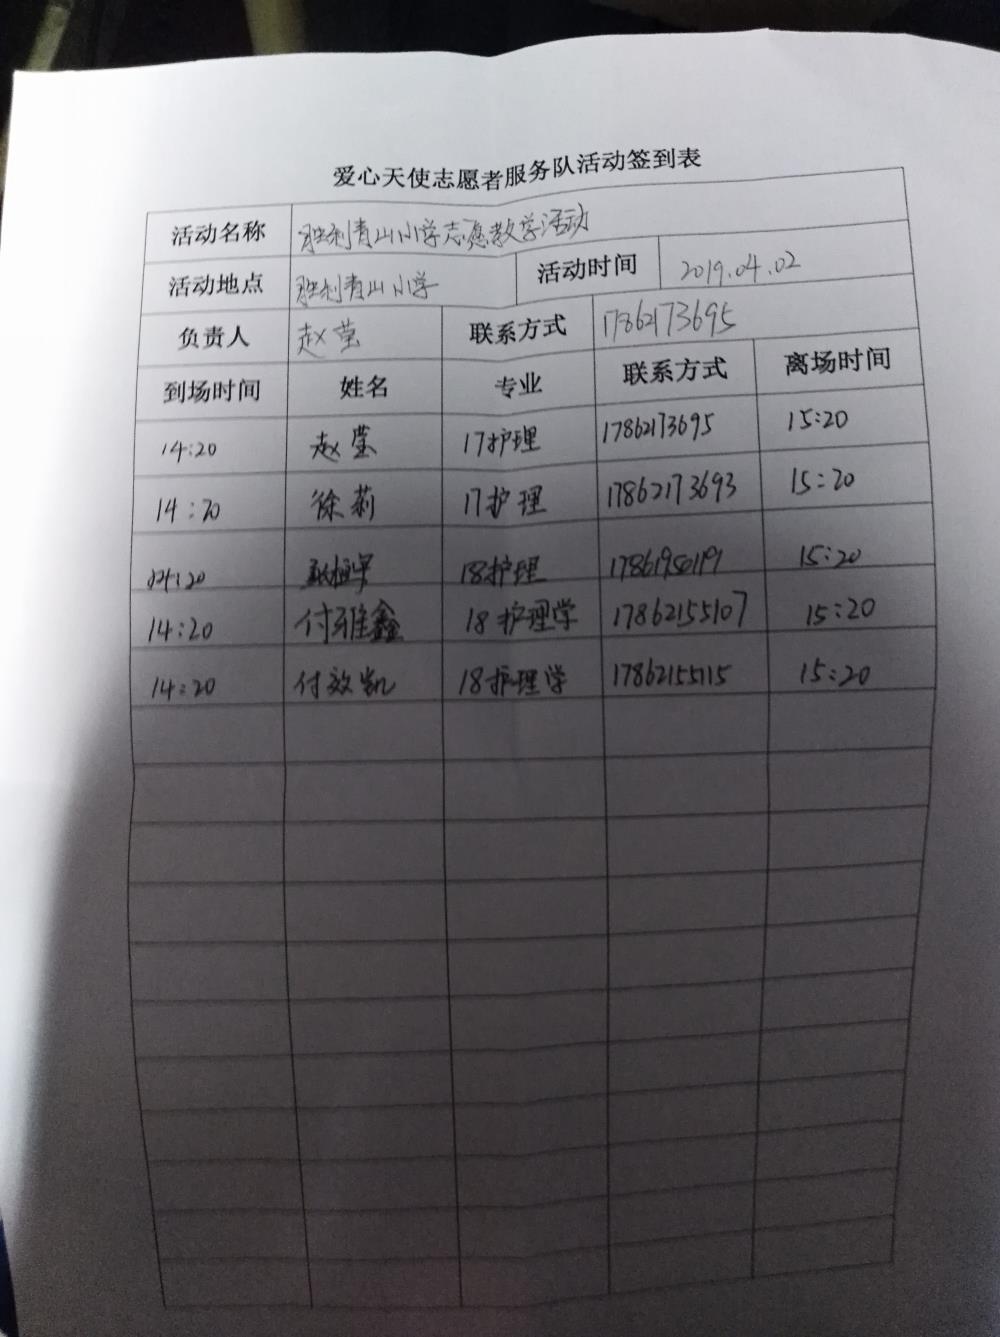 爱心天使志愿者服务队活动签到表
活动名称 胜利青山小学志愿教学活动
活动地点 胜利青山小学 活动时间 2019.04.02
负责人 赵莹 联系方式 17862173695
到场时间 姓名 专业 联系方式 离场时间
14:20 赵莹 17护理 17862173695 15:20
14:20 徐莉 17护理 17862173693 15:20
14:20 18护理 15:20
14:20 付雅鑫 18护理学 17862155107 15:20
14:20 付效凯 18护理学 17862155115 15:20